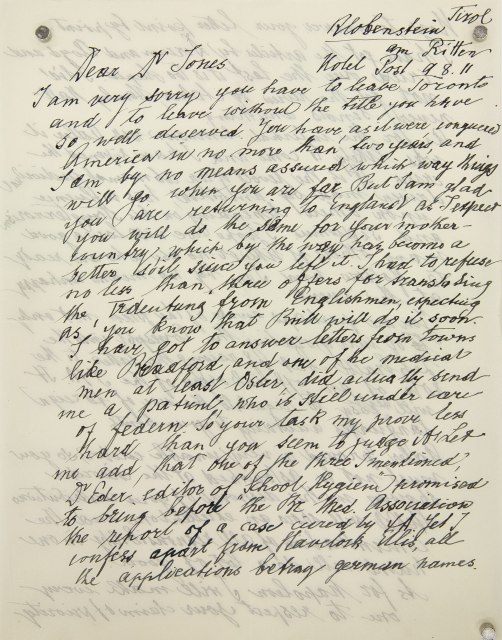 Klobenstein Tirol
am Ritten
Hotel Post 9.8.11
Dear Dr Jones
I am very sorry you have to leave Toronto
and to leave without the title you have
so well deserved. You have as it were conquered
America in no more than two years, and
I am by no means assured which way things
will go, when you are far. But I am glad
you are returning to England as I expect
you will do the same for your mother-
country, which by the way has become a
better soil since you left it. I had to refuse
no less than three offers for translating
the Trdeutung from Englishmen, expecting
as you know that Brill will do it soon.
I have got to answer letters from towns
like Bradford, and one of the medical
men at least Osler, did actually send
me a patient, who is still under care
of Federn. So your task my prove less
hard than you seem to judge it. Let
me add that one of the three I mentioned,
Dr Eder editor of School Hygiene promised
to bring before the Br. Med. Association
the report of a case cured by ΨA. Yet I
confess apart from Havelock Ellis, all
the applications betray german names.